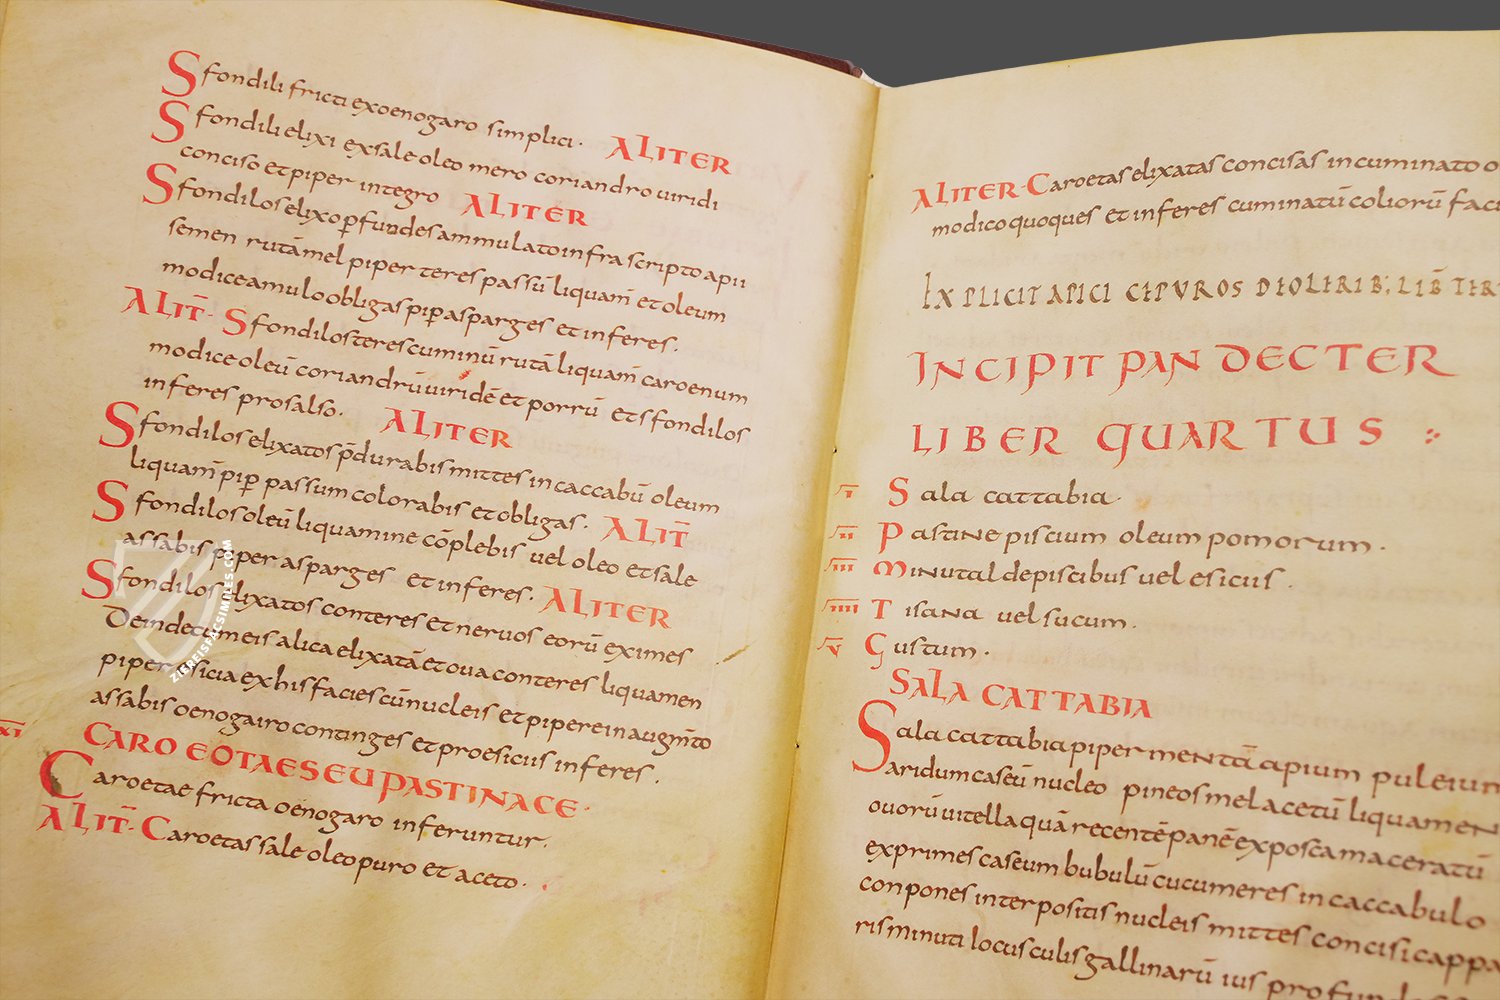 Sfondili fricti exoenogaro simplici· ALITER
Sfondili elixi exsale oleo mero coriandro uiridi
conciso et piper integro ALITER
Sfondilos elixo pfundes ammulato infra scripto apii
semen rutā mel piper teres passū liquam̄ et oleum
modice amulo obligas pip asparges et inferes.
ALIT̄· Sfondilos teres cuminū rutā liquam̄ caroenum
modice oleū coriandrū uiridē et porrū et sfondilos
inferes prosalso. ALITER
Sfondilos elixatos p̄durabis mittes in caccabū oleum
liquam̄ pip passum colorabis et obligas. ALIT̄
Sfondilos oleū liquamine cōplebis uel oleo et sale
assabis piper asparges et inferes. ALITER
Sfondilos elixatos conteres et neruos eorū eximes
Deinde cum eis alica elixatā et oua conteres liquamen
piper esicia ex his facies cū nucleis et pipere in
assabis oenogairo continges et proesicius inferes.
XI CARO EOTAE SEU PASTINACE·
Caroetae fricta oenogaro inferuntur.
ALIT̄· Caroetas sale oleo puro et aceto·
ZIEREISFACSIMILES.COM
ALITER· Caroetas elixatas concisas incuminato o
modico quoques et inferes cuminatū coliorū faci
EXPLICIT APICI CEPVROS DEOLERIB; LIB̄ TER
INCIPIT PAN DECTER
LIBER QUARTUS :·
I Sala cattabia·
II Pastine piscium oleum pomorum.
III Minutal depiscibus uel esicius.
IIII Tisana uel sucum.
V Gustum.
SALA CATTABIA
Sala cattabia piper mentā apium puleium
aridum caseū nucleo pineos mel acetū liquamen
ouorū uitella quā recentē panē exposca maceratū
exprimes caseum bubulū cucumeres in caccabulo
conpones interpositis nucleis mittes concisi cappa
ris minuti locusculis gallinarū ius profun